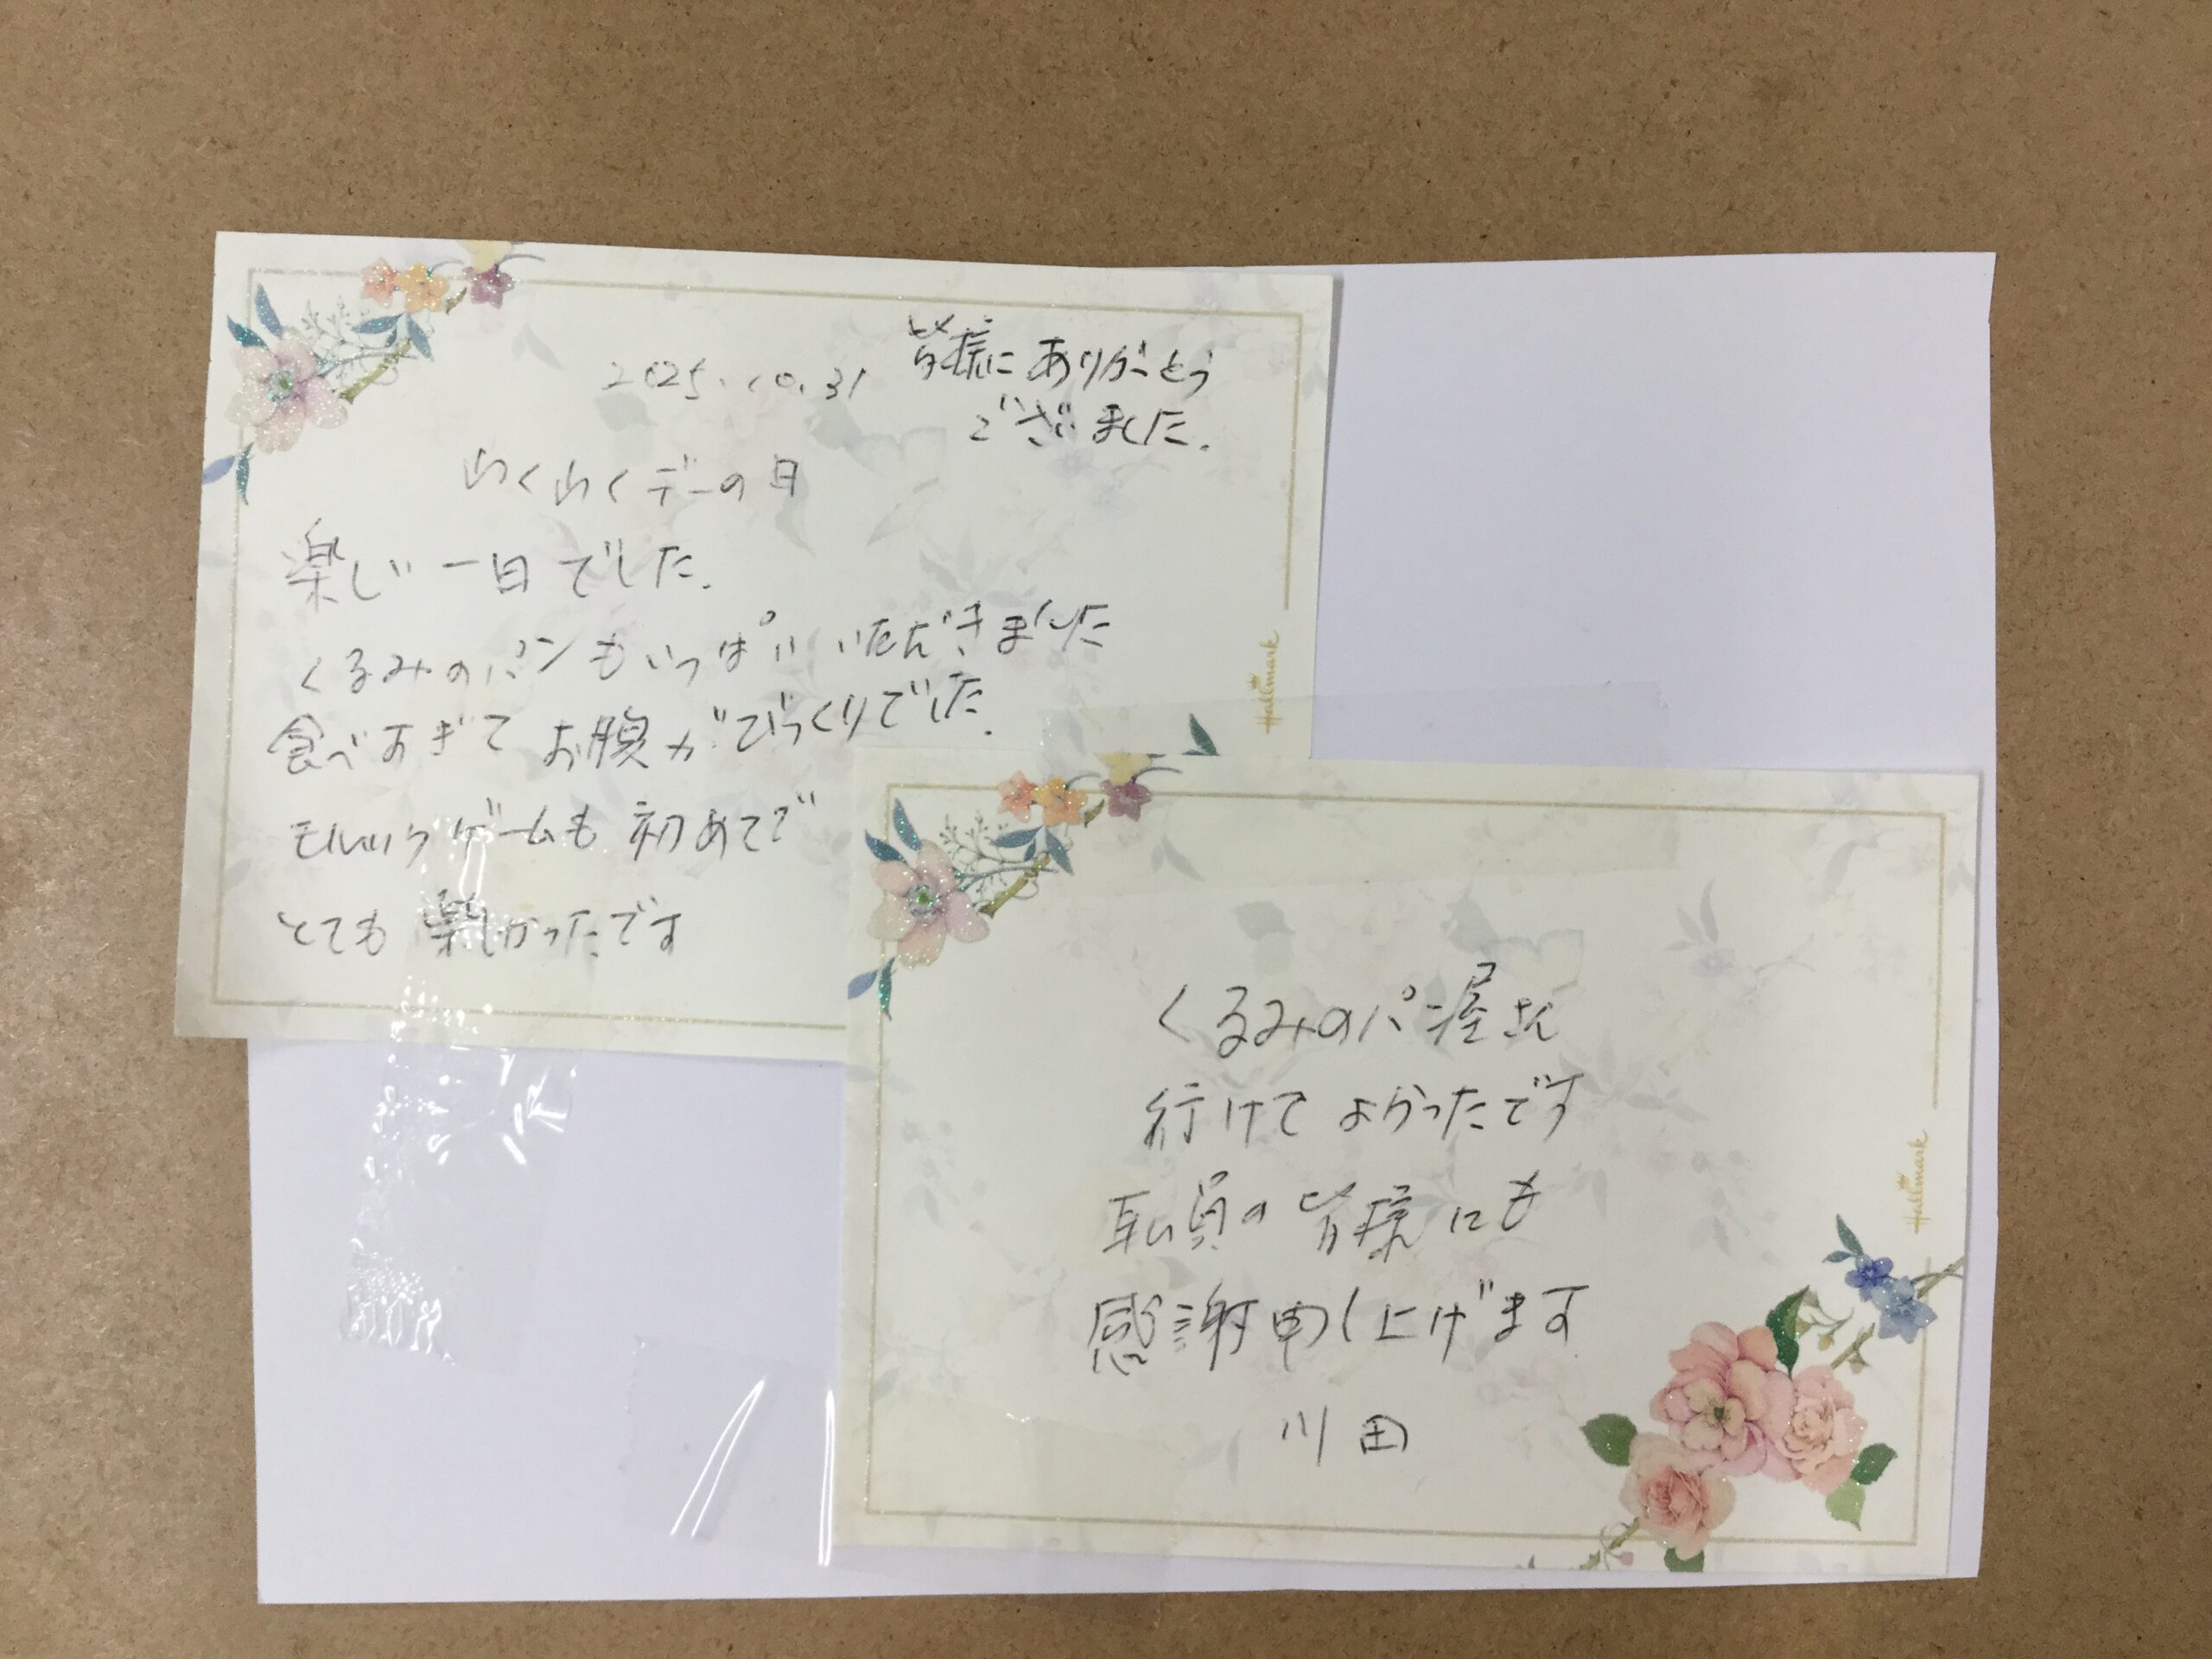 2025.10.31
皆様にありがとう
ございました.
わくわくデーの日
楽しい一日でした.
くるみのパンもいっぱいいただきました
食べすぎてお腹がびっくりでした.
モルックゲームも初めてで
とても楽しかったです
Hallmark
くるみのパン屋さん
行けてよかったです
職員の皆様にも
感謝申し上げます
川田
Hallmark